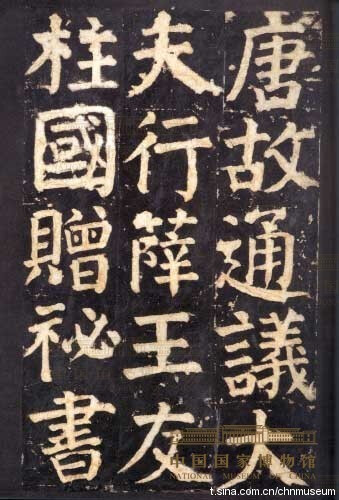 唐故通議大
夫行薛王友
柱國贈祕書
中国国家博物馆
NATIONAL MUSEUM OF CHINA
t.sina.com.cn/chnmuseum